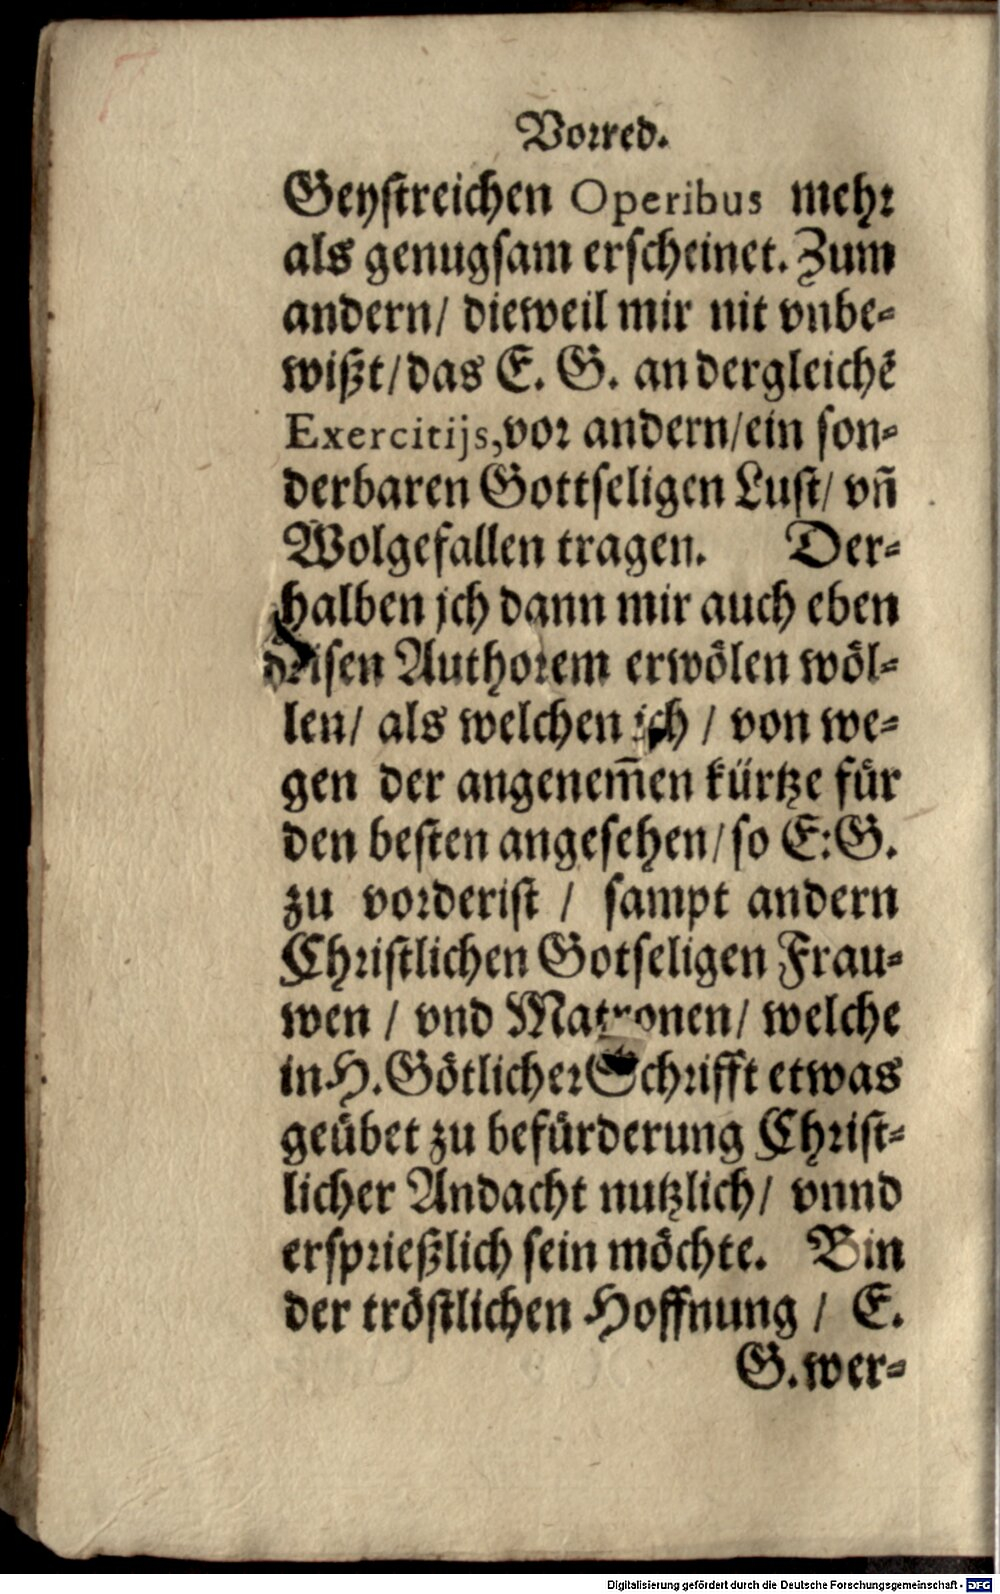 Vorred.
Geystreichen Operibus mehr
als genugsam erscheinet. Zum
andern/ dieweil mir nit vnbe⸗
wißt/das E. G. an dergleichē
Exercitijs,vor andern/ein son⸗
derbaren Gottseligen Lust/ vñ
Wolgefallen tragen. Der⸗
halben jch dann mir auch eben
disen Authorem erwölen wöl⸗
len/ als welchen ich / von we⸗
gen der angenem̃en kürtze für
den besten angesehen/so E:G.
zu vorderist / sampt andern
Christlichen Gotseligen Frau⸗
wen / vnd Matronen/ welche
in H. Götlicher Schrifft etwas
geübet zu befürderung Christ⸗
licher Andacht nutzlich/ vnnd
ersprießlich sein möchte. Bin
der tröstlichen Hoffnung / E.
G. wer⸗
Digitalisierung gefördert durch die Deutsche Forschungsgemeinschaft - DFG